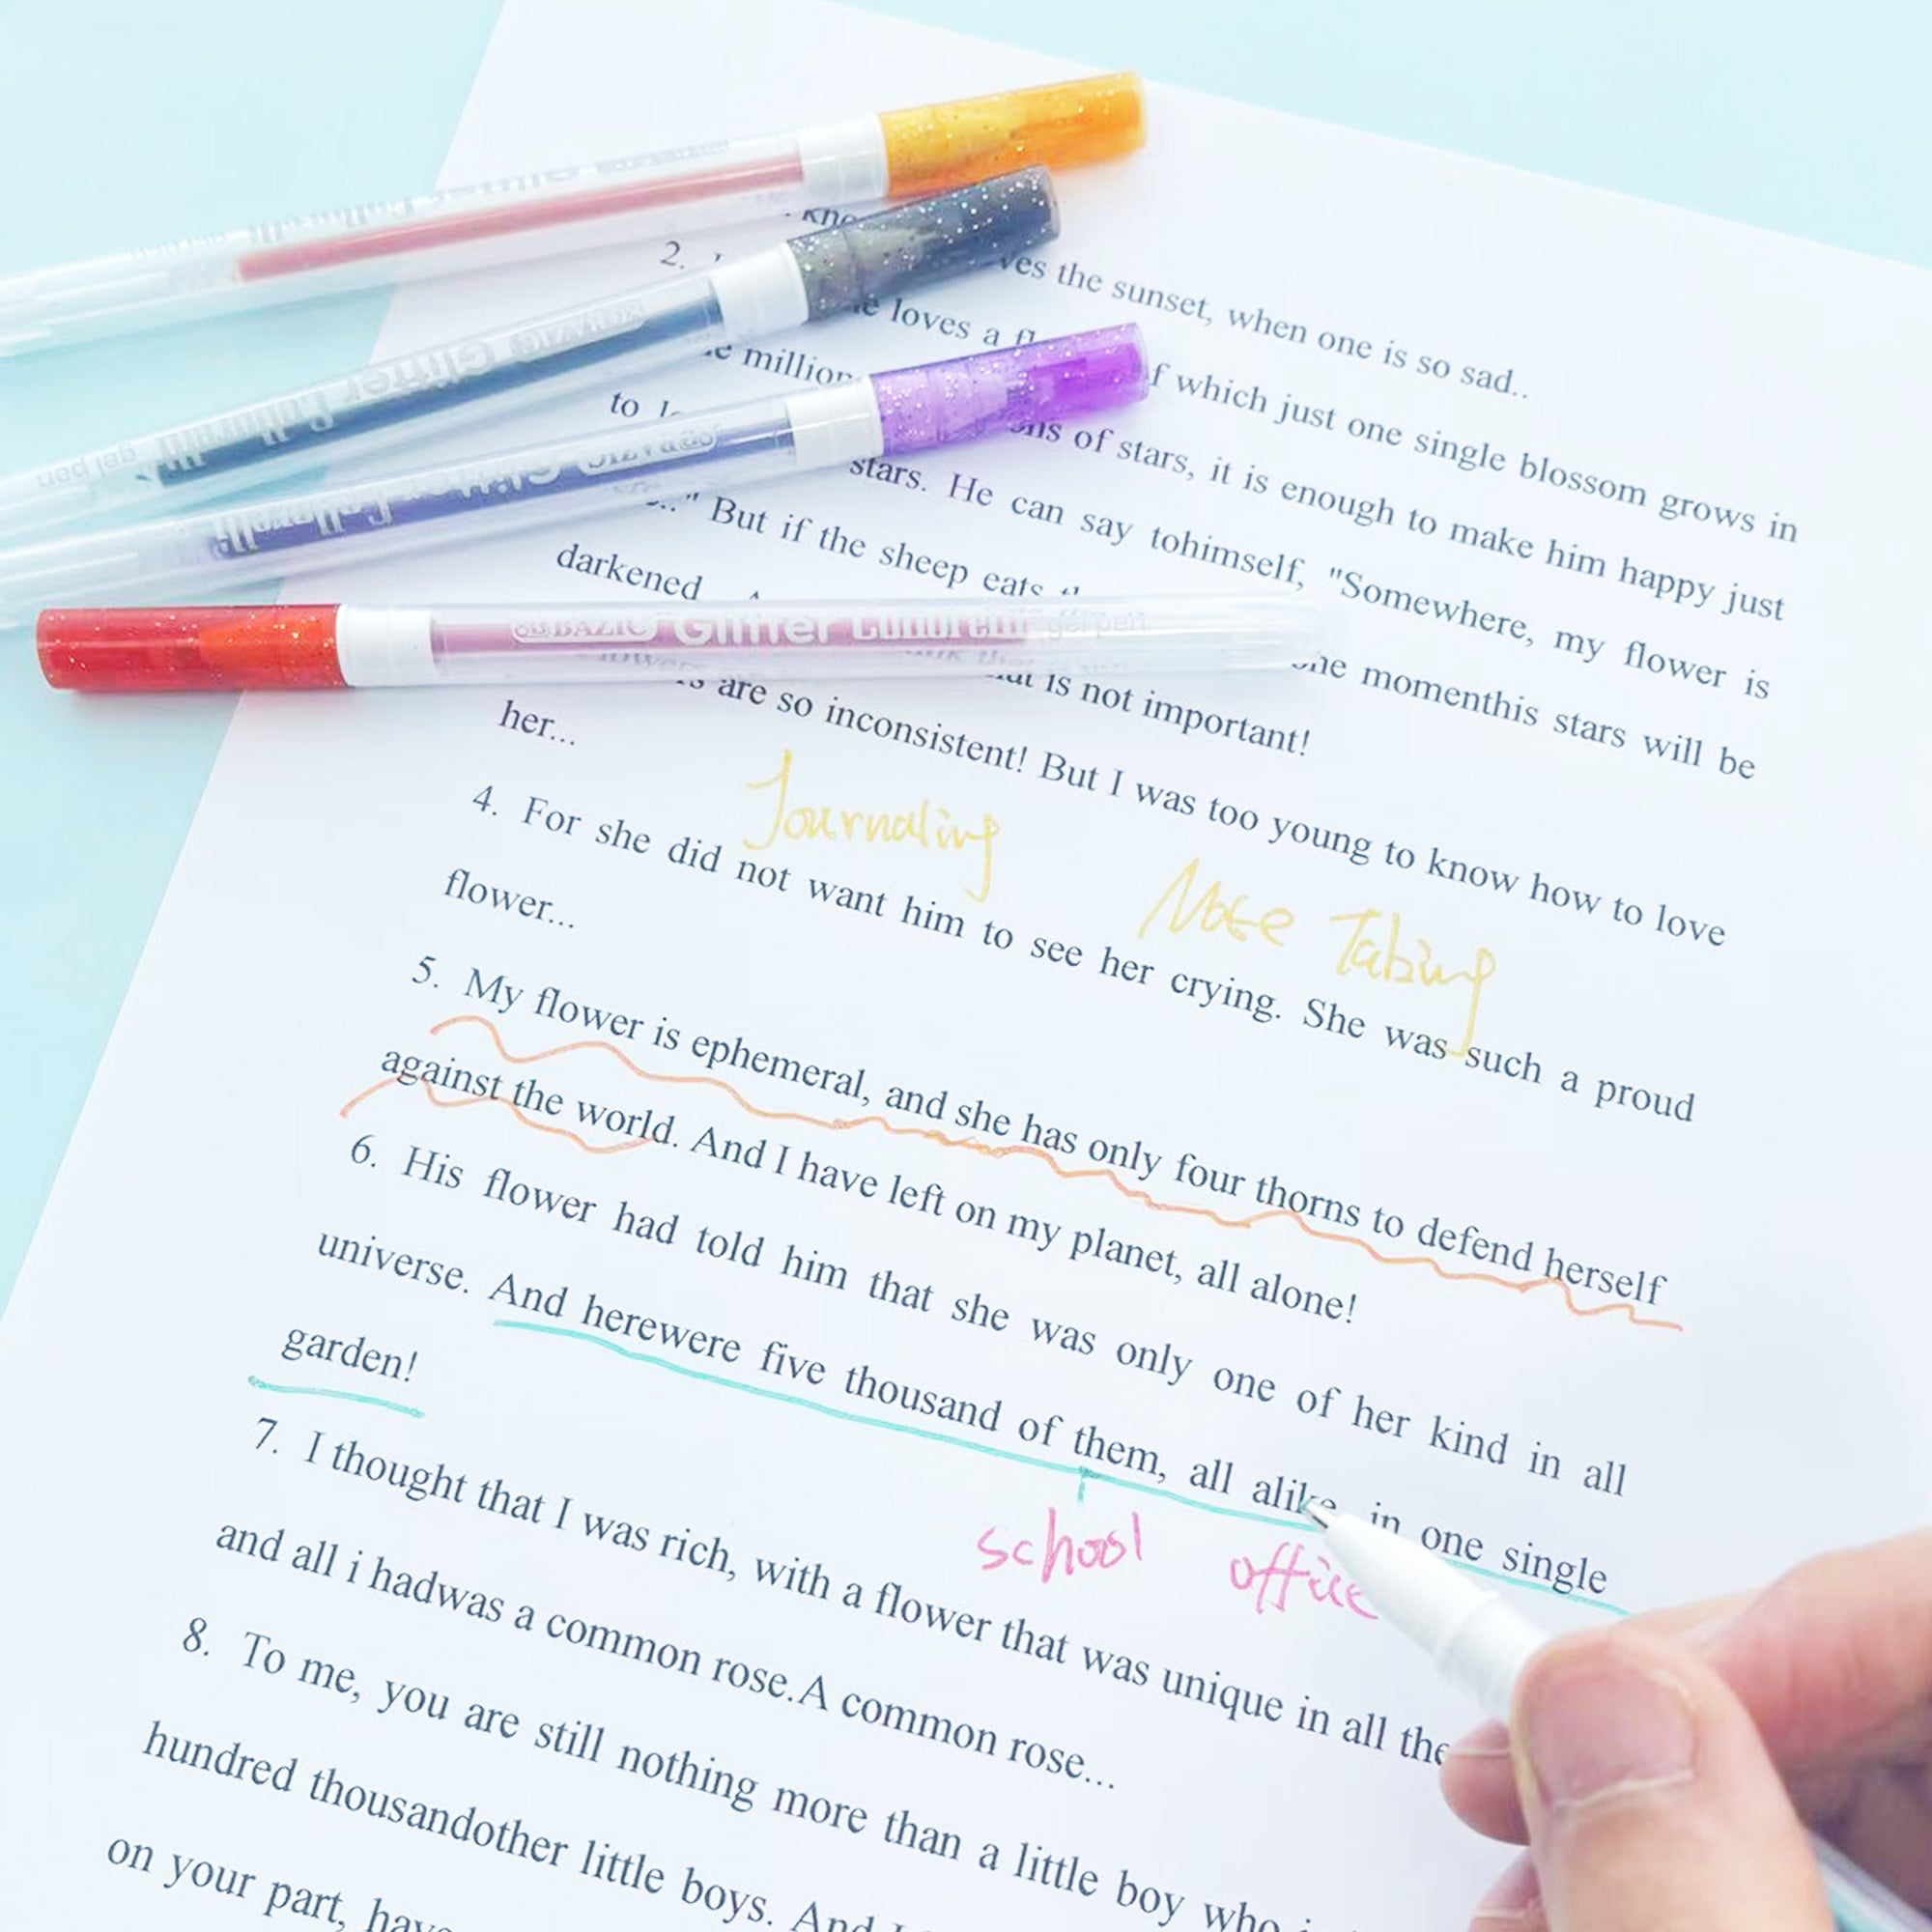 2.
the sunset, when one is so sad..
loves a which just one single blossom grows in
of stars, it is enough to make him happy just
to stars. He can say tohimself, "Somewhere, my flower is
But if the sheep eats momenthis stars will be
darkened is not important!
are so inconsistent! But I was too young to know how to love
her...
Journaling
4. For she did not want him to see her crying. She was such a proud
flower...
5. My flower is ephemeral, and she has only four thorns to defend herself
against the world. And I have left on my planet, all alone!
6. His flower had told him that she was only one of her kind in all
universe. And herewere five thousand of them, all alike, in one single
garden!
school office
7. I thought that I was rich, with a flower that was unique in all the
and all i hadwas a common rose.A common rose...
8. To me, you are still nothing more than a little boy who
hundred thousandother little boys. And
on your part, have
BAZIC Glitter Collorelli gel pen
BAZIC Glitter Collorelli gel pen
BAZIC Glitter Collorelli
Glitter Collorelli